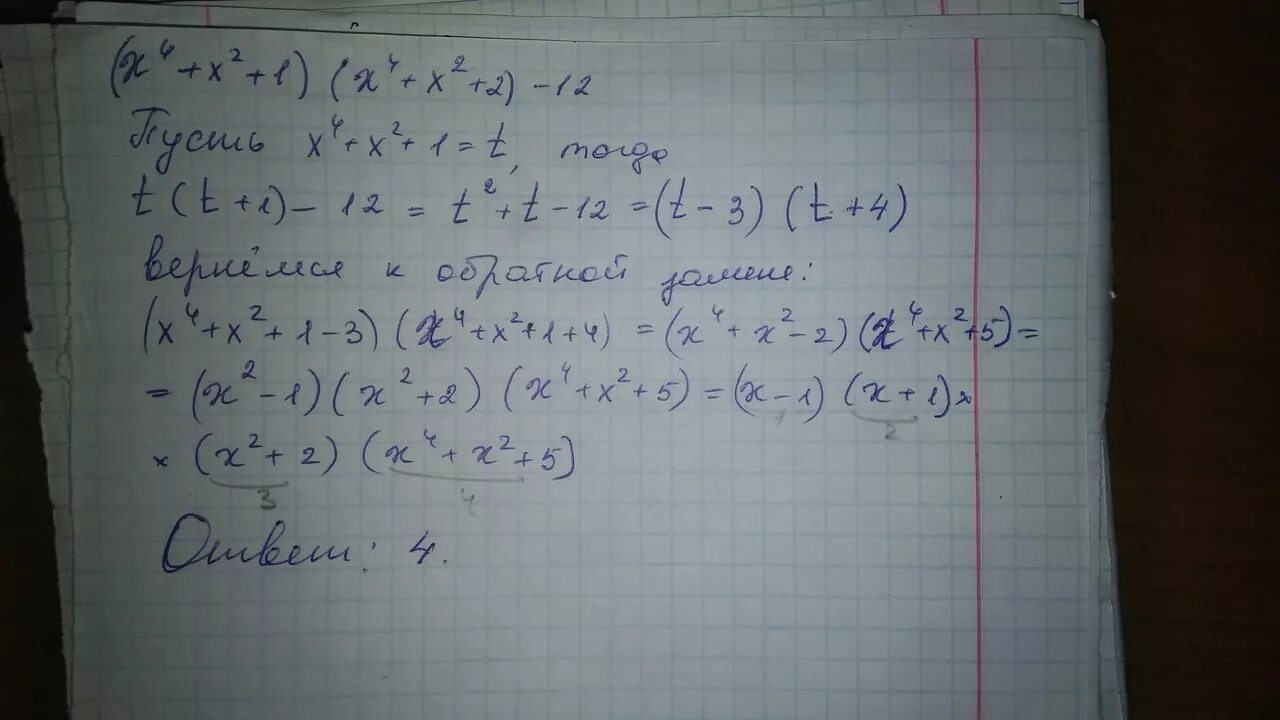 (x⁴+x²+1) (x⁴+x²+2) -12
Пусть x⁴+x²+1=t, тогда
t(t+1)-12 = t²+t-12 = (t-3) (t+4)
вернёмся к обратной замене:
(x⁴+x²+1-3) (x⁴+x²+1+4) = (x⁴+x²-2) (x⁴+x²+5) =
= (x²-1) (x²+2) (x⁴+x²+5) = (x-1) (x+1) ×
1 2
× (x²+2) (x⁴+x²+5)
3 4
Ответ: 4.